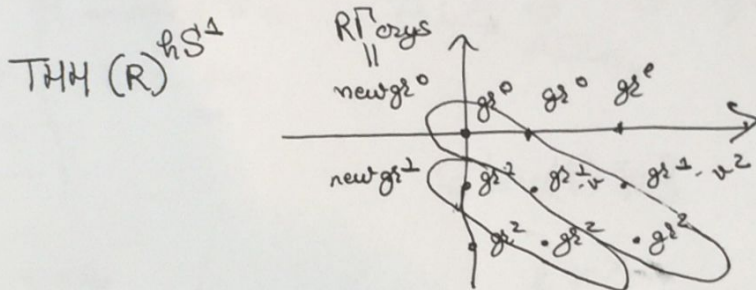 THH (R)^{hS^1}
RΓcrys
||
new gr^0
gr^0 gr^0 gr^0
new gr^1
gr^1 gr^1·v gr^1·v^2
gr^2 ·gr^2 gr^2